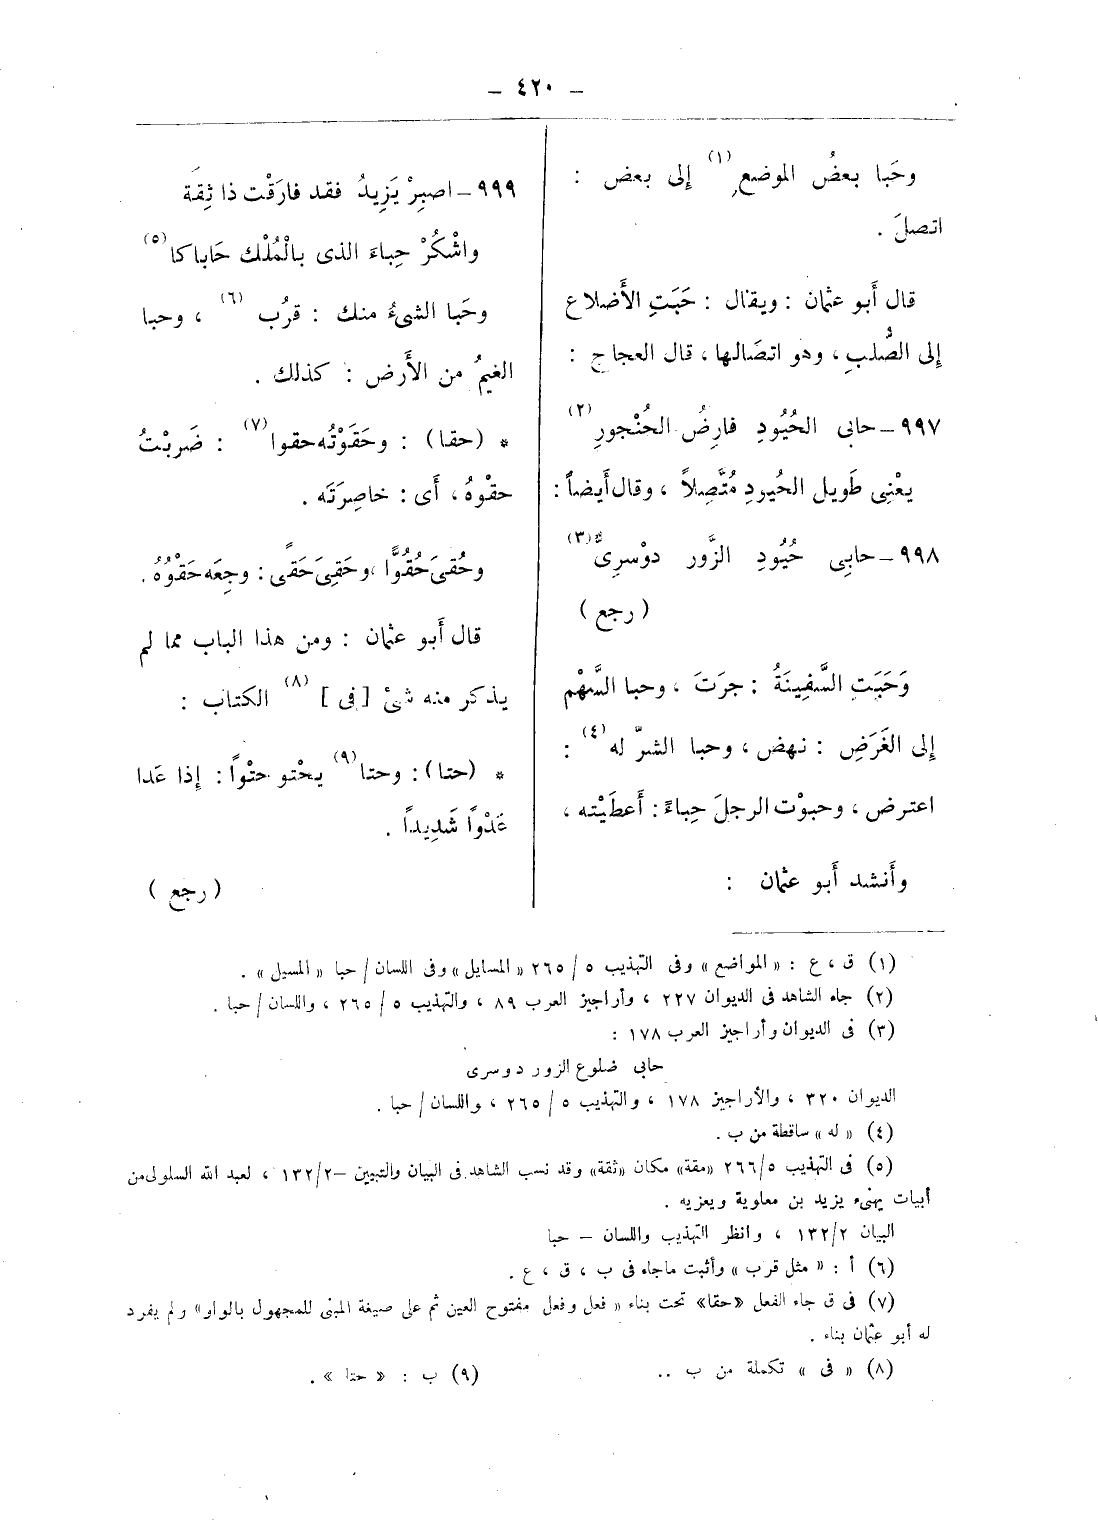 – ٤٢٠ –
وحَبا بعضُ الموضع (١) إلى بعض :
اتصلَ .
قال أَبو عثمان : ويقال : حَبَتِ الأَضلاع
إلى الصُّلبِ ، وهو اتصَالها ، قال العجاج :
٩٩٧ – حابى الحُيُودِ فارِضُ الحُنْجورِ (٢)
يعْنِى طَويل الحيودِ مُتَّصِلاً ، وقال أَيضاً :
٩٩٨ – حابِى حُيُودِ الزَّور دوْسرِىٌّ (٣)
( رجع )
وَحَبَتِ السَّفِينَةُ : جرَتَ ، وحبا السَّهْم
إلى الغَرَضِ : نهض ، وحبا الشرّ له (٤) :
اعترض ، وحبوْت الرجلَ حِباءً : أَعطَيْته ،
وأَنشد أَبو عثمان :
٩٩٩ – اصبِرْ يَزِيدُ فقد فارَقْت ذا ثِقَة
واشْكُرْ حِباءَ الذى بالْمُلْك حَاباكا (٥)
وحَبا الشىءُ منك : قرُب (٦) ، وحبا
الغيمُ من الأَرض : كذلك .
* (حقا) : وحَقَوْتُه حقوا (٧) : ضَربْتُ
حقْوهُ ، أَى : خاصِرَتَه .
وحُقىَ حُقُوًّا ، وحَقِىَ حَقًى : وجِعَه حَقْوُهُ .
قال أَبو عثمان : ومن هذا الباب مما لم
يذكر منه شىْ [ فى ] (٨) الكتاب :
* (حتا) : وحتا (٩) يحْتو حتْواً : إذا عَدا
عَدْواً شَدِيداً .
( رجع )
(١) ق ، ع : « المواضع » وفى التهذيب ٥ / ٢٦٥ « المسايل » وفى اللسان / حبا « المسيل » .
(٢) جاء الشاهد فى الديوان ٢٢٧ ، وأراجيز العرب ٨٩ ، والتهذيب ٥ / ٢٦٥ ، واللسان / حبا .
(٣) فى الديوان وأراجيز العرب ١٧٨ :
حابى ضلوع الزور دوسرى
الديوان ٣٢٠ ، والأراجيز ١٧٨ ، والتهذيب ٥ / ٢٦٥ ، واللسان / حبا .
(٤) « له » ساقطة من ب .
(٥) فى التهذيب ٢٦٦/٥ «مقة» مكان «ثقة» وقد نسب الشاهد فى البيان والتبيين – ١٣٢/٢ ، لعبد الله السلولى من
أبيات يهنىء يزيد بن معاوية ويعزيه .
البيان ١٣٢/٢ ، وانظر التهذيب واللسان – حبا
(٦) أ : « مثل قرب » وأثبت ماجاء فى ب ، ق ، ع .
(٧) فى ق جاء الفعل «حقا» تحت بناء « فعل وفعل مفتوح العين ثم على صيغة المبنى للمجهول بالواو» ولم يفرد
له أبو عثمان بناء .
(٨) « فى » تكملة من ب ..
(٩) ب : « حتا » .